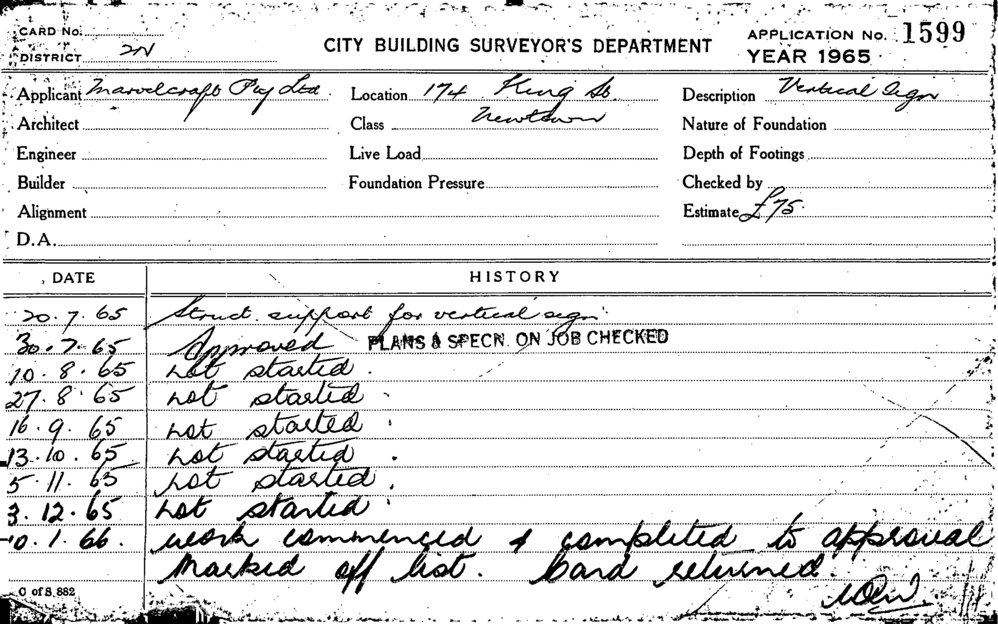 CARD No.
DISTRICT 2N
CITY BUILDING SURVEYOR'S DEPARTMENT
APPLICATION No. 1599
YEAR 1965
Applicant Marvelcraft Pty Ltd. Location 174 King St. Description Vertical Sign
Architect Class Newtown Nature of Foundation
Engineer Live Load Depth of Footings
Builder Foundation Pressure Checked by
Alignment Estimate £75.
D.A.
DATE HISTORY
20.7.65 Struct. support for vertical sign
30.7.65 Approved PLANS & SPECN. ON JOB CHECKED
10.8.65 not started.
27.8.65 not started.
16.9.65 not started.
13.10.65 not started.
5.11.65 not started.
3.12.65 not started.
10.1.66. work commenced & completed to approval
Marked off list. Card returned.
C of S. 882